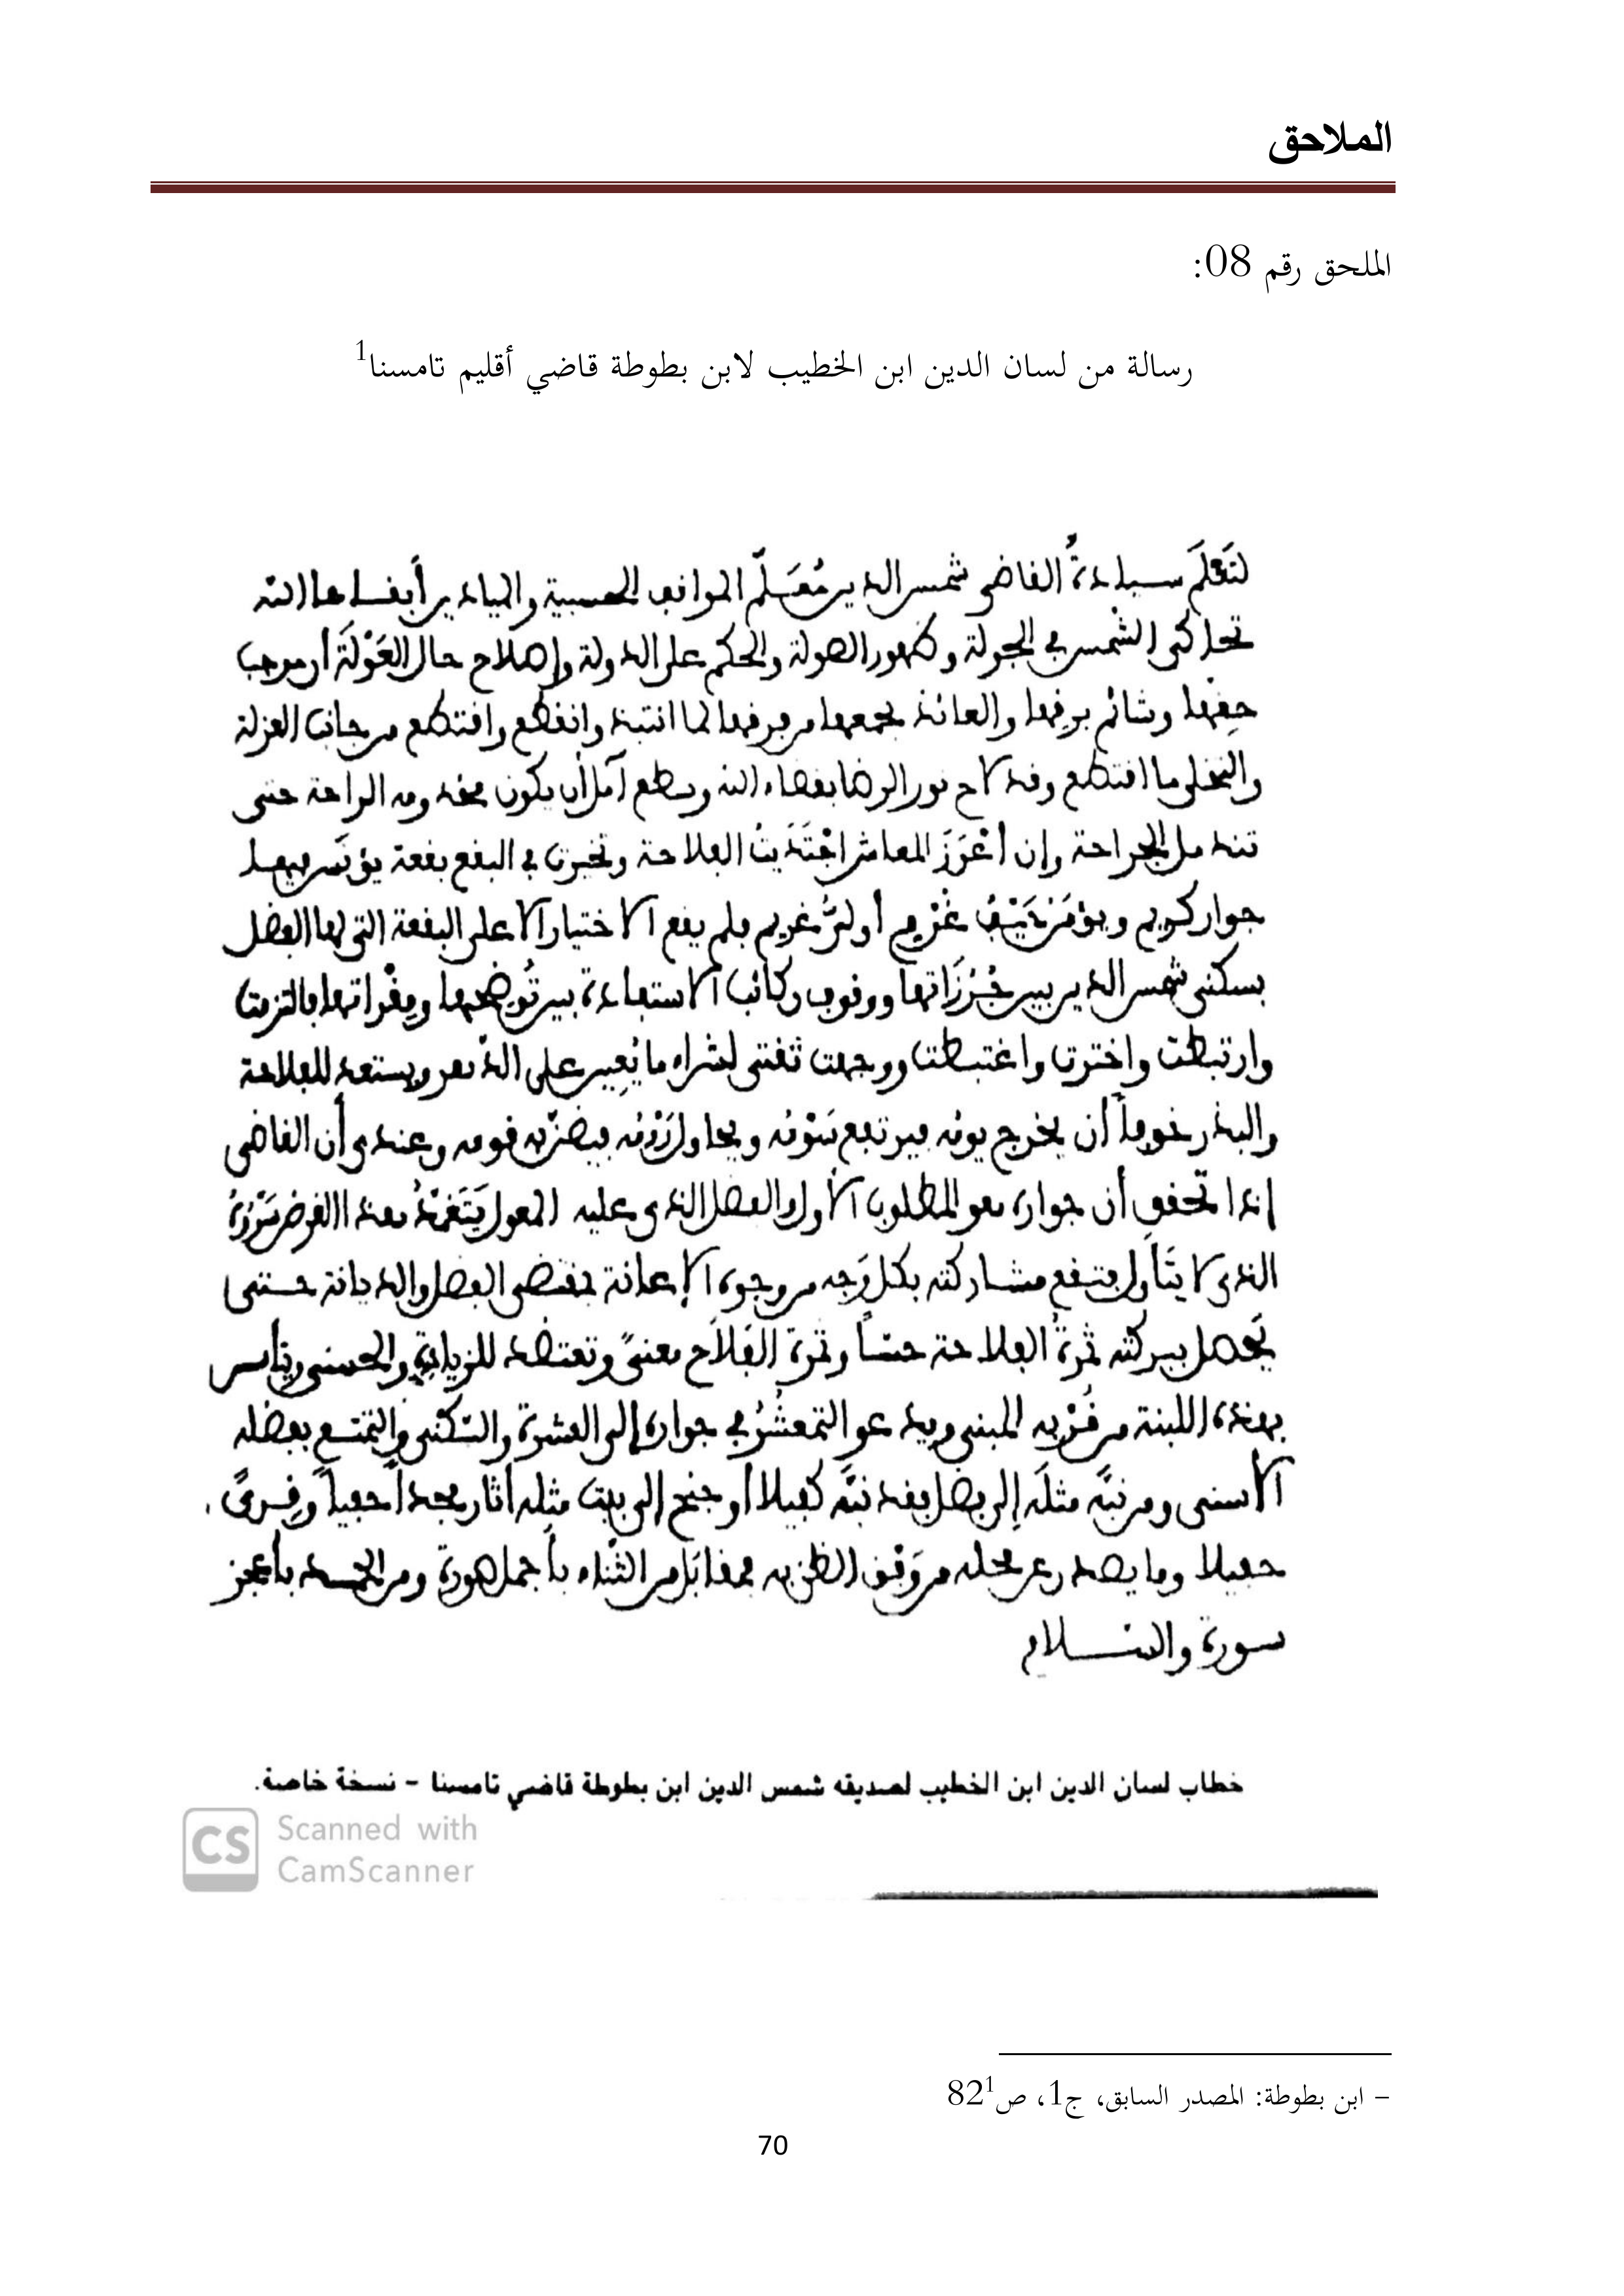 الملاحق
الملحق رقم 08:
رسالة من لسان الدين ابن الخطيب لابن بطوطة قاضي أقليم تامسنا1
لتعلم سيادة القاضي شمس الدين مُعَلّم المواقف الحسبية والميادين أبقاها الله
تحاكي الشمس في الجولة وظهور الصولة والحكم على الدولة وإصلاح حال العَوْلَة أن موجب
حقها وشائم برقها والعائذ بجمعها من فرقها لما انتبذ وانقطع واقتطع من جانب العزلة
والتخلي ما اقتطع وقد لاح نور الرضا بقضاء الله وسطع آمل أن يكون بعده ومه الراحة حتى
تندمل الجراحة وإن أعْوَزَ المعاش اجْتُدِيَتْ الفلاحة وتخيرت في البقع بقعة يؤنس فيها
جوار كريم ويؤمن غريم أو لزّ غريم فلم يقع الاختيار إلا على البقعة التي لها الفضل
بسكنى شمس الدين بين جُزَرَاتها ووقوف ركائب الاستفادة بين تُوضحها ومِقْراتها فالتزمت
وارتبطت واخترت واغتبطت ووجهت ثقتي لشراء ما يُعِين على الدهر ويستعد للفلاحة
والبذر خوفاً أن يخرج يونه فيرتفع سَوْنه ويحاول فيضرّ به قومه وعندي أن القاضي
إذا تحقق أن جواره هو المطلوب الأول والفضل الذي عليه المعول يَتَغَمَّدُ هذا الغرض
الذي لا يتأول فتقع مشاركته بكل وَجه من وجوه الإعانة بمقتضى الفضل والديانة حتى
يَحصل ببركته ثمرةُ الفلاحة حسّاً وثمرة الفَلاَح معنىً وتعتضد للزيادة والحسنى ويتأسس
بهذه اللبنة من قُرْبه المبنى ويدعو التمعشُ في جواره إلى العشرة والسكنى والتمتع بفضله
الأسنى ومن نبّه مثلَه إلى فضل فقد نبّه كفيلا أو جنح إلى بيت مثِله أثار مجداً حفيلاً وقِرىً
حفيلا وما يصدر عن محله من وَفق الظن به بمقابَل من الثناء بأجمل صورة ومن الحمد بأعجز
سورة والسلام
خطاب لسان الدين ابن الخطيب لصديقه شمس الدين ابن بطوطة قاضي تامسنا – نسخة خاصة.
CS Scanned with
CamScanner
– ابن بطوطة: المصدر السابق، ج1، ص82 1
70